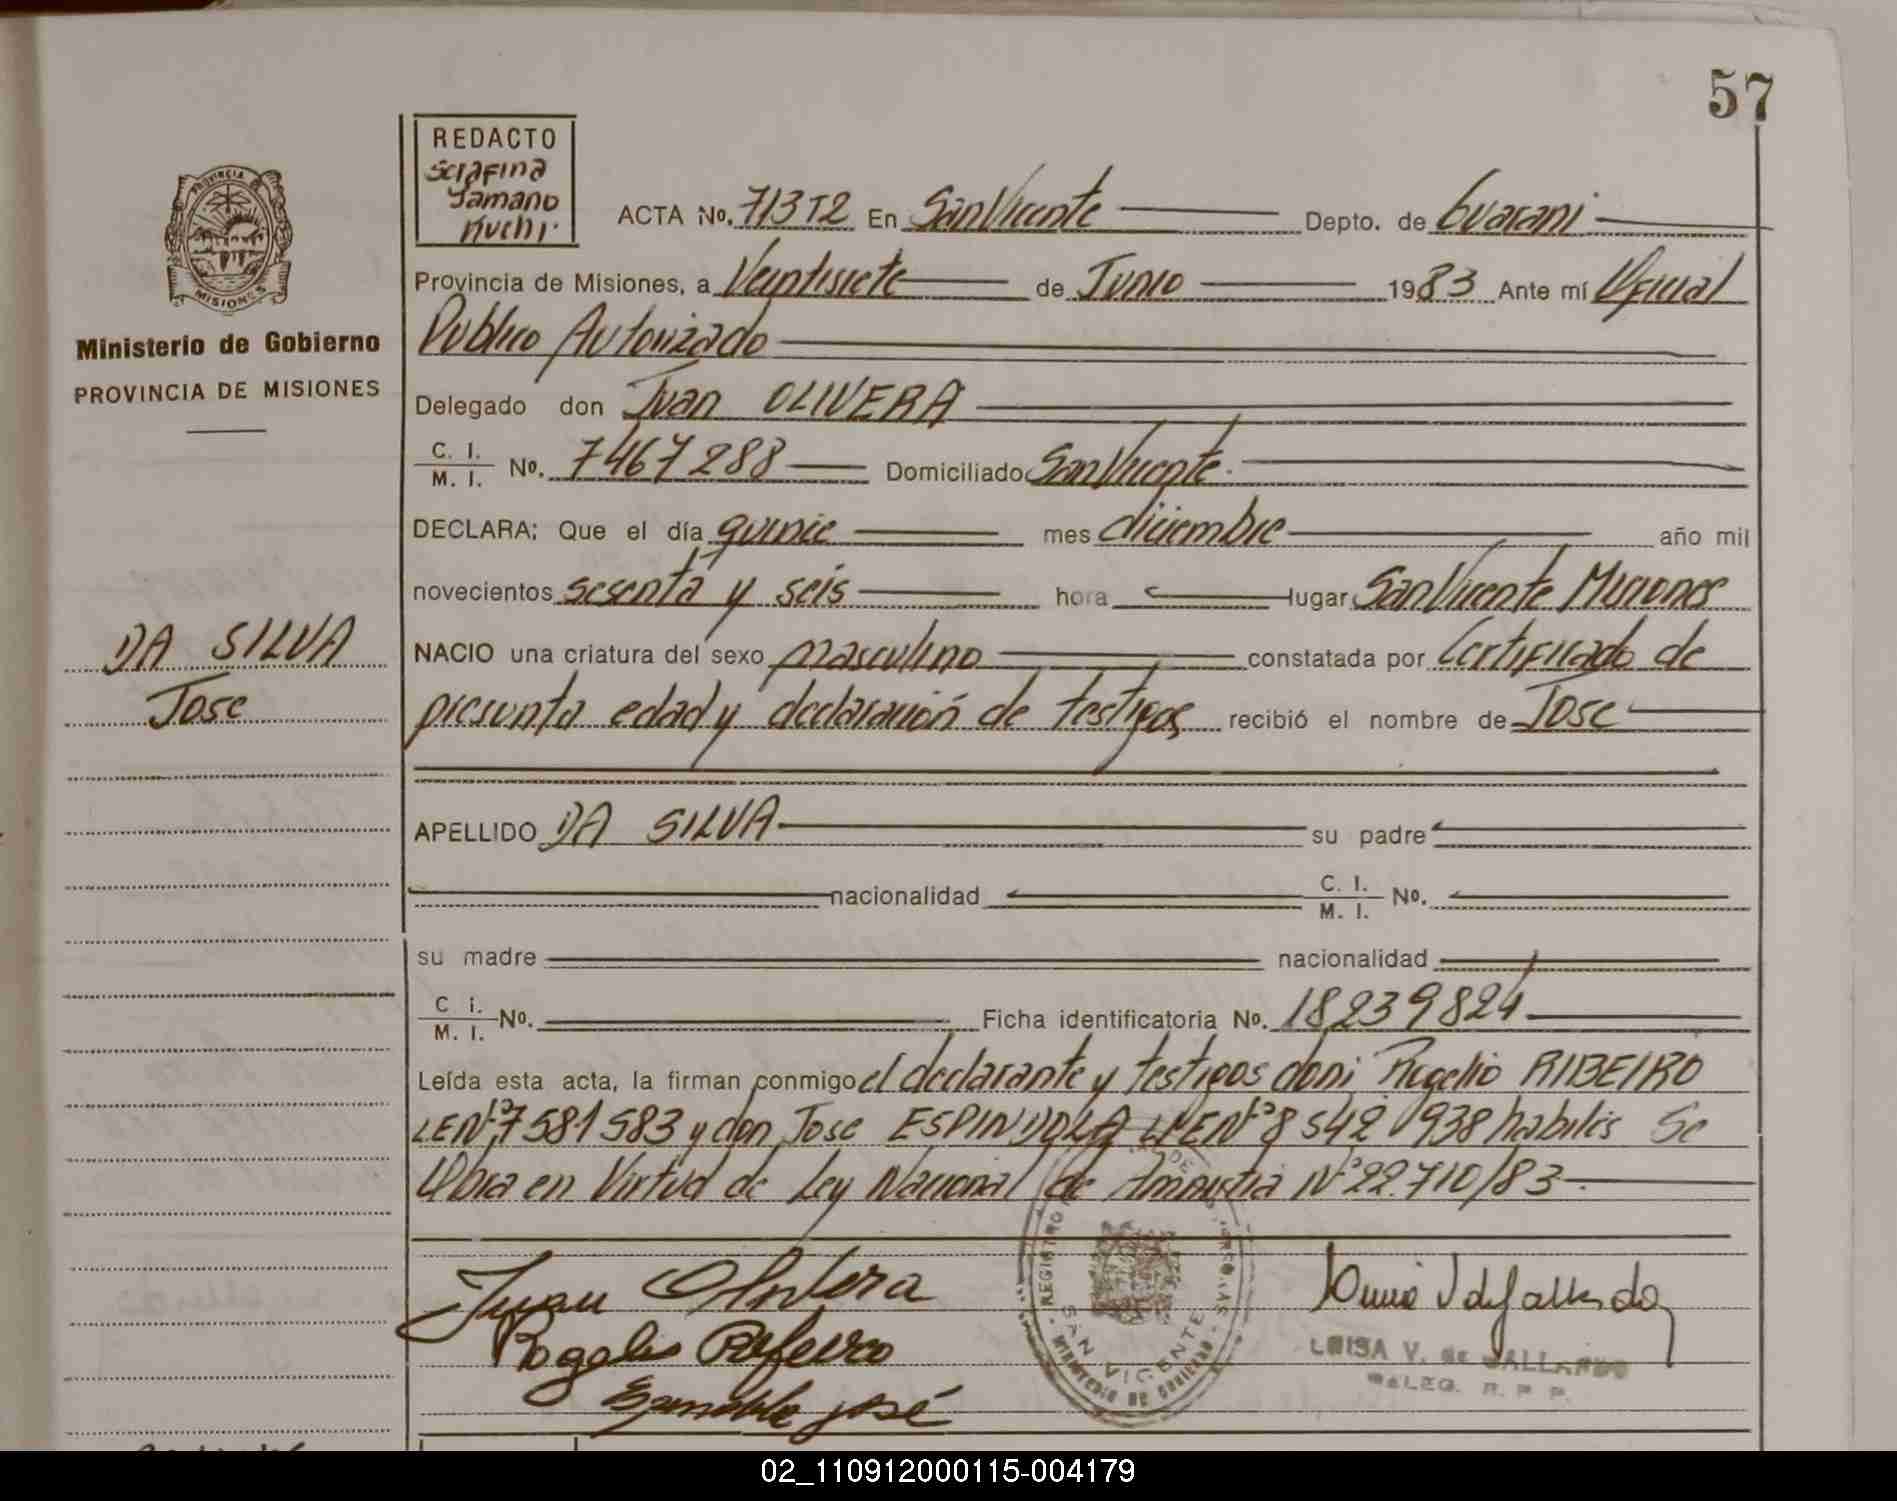 57
REDACTO
Serafina
Yamano
Kuchi.
PROVINCIA
MISIONES
Ministerio de Gobierno
PROVINCIA DE MISIONES
DA SILVA
Jose
ACTA No. 713T2 En San Vicente Depto. de Guarani
Provincia de Misiones, a Veintisiete de Junio 1983 Ante mí Oficial
Publico Autorizado
Delegado don Juan OLIVERA
C. I. / M. I. No. 7467288 Domiciliado San Vicente.
DECLARA: Que el día quince mes diciembre año mil
novecientos sesenta y seis hora lugar San Vicente Misiones
NACIO una criatura del sexo masculino constatada por Certificado de
presunta edad y declaración de testigos recibió el nombre de Jose
APELLIDO DA SILVA su padre
nacionalidad C. I. / M. I. No.
su madre nacionalidad
C i. / M. I. No. Ficha identificatoria No. 18239824
Leída esta acta, la firman conmigo el declarante y testigos don: Rogelio RIBEIRO
LENº7581583 y don Jose ESPINDOLA Nº8542938 habiles Se
labra en Virtud de Ley Nacional de Amnistia Nº22.710/83
Juan Olivera
Rogelio Ribeiro
Espindola José
REGISTRO
SAN VICENTE
MINISTERIO DE GOBIERNO
LUISA V. de GALLARDO
DELEG. R. P. P.
02_110912000115-004179